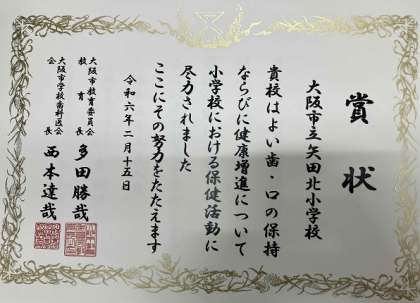 賞状
大阪市立矢田北小学校
貴校はよい歯・口の保持
ならびに健康増進について
小学校における保健活動に
尽力されました
ここにその努力をたたえます
令和六年二月十五日
大阪市教育委員会
教育長 多田勝哉
大阪市学校歯科医会
会長 西本達哉